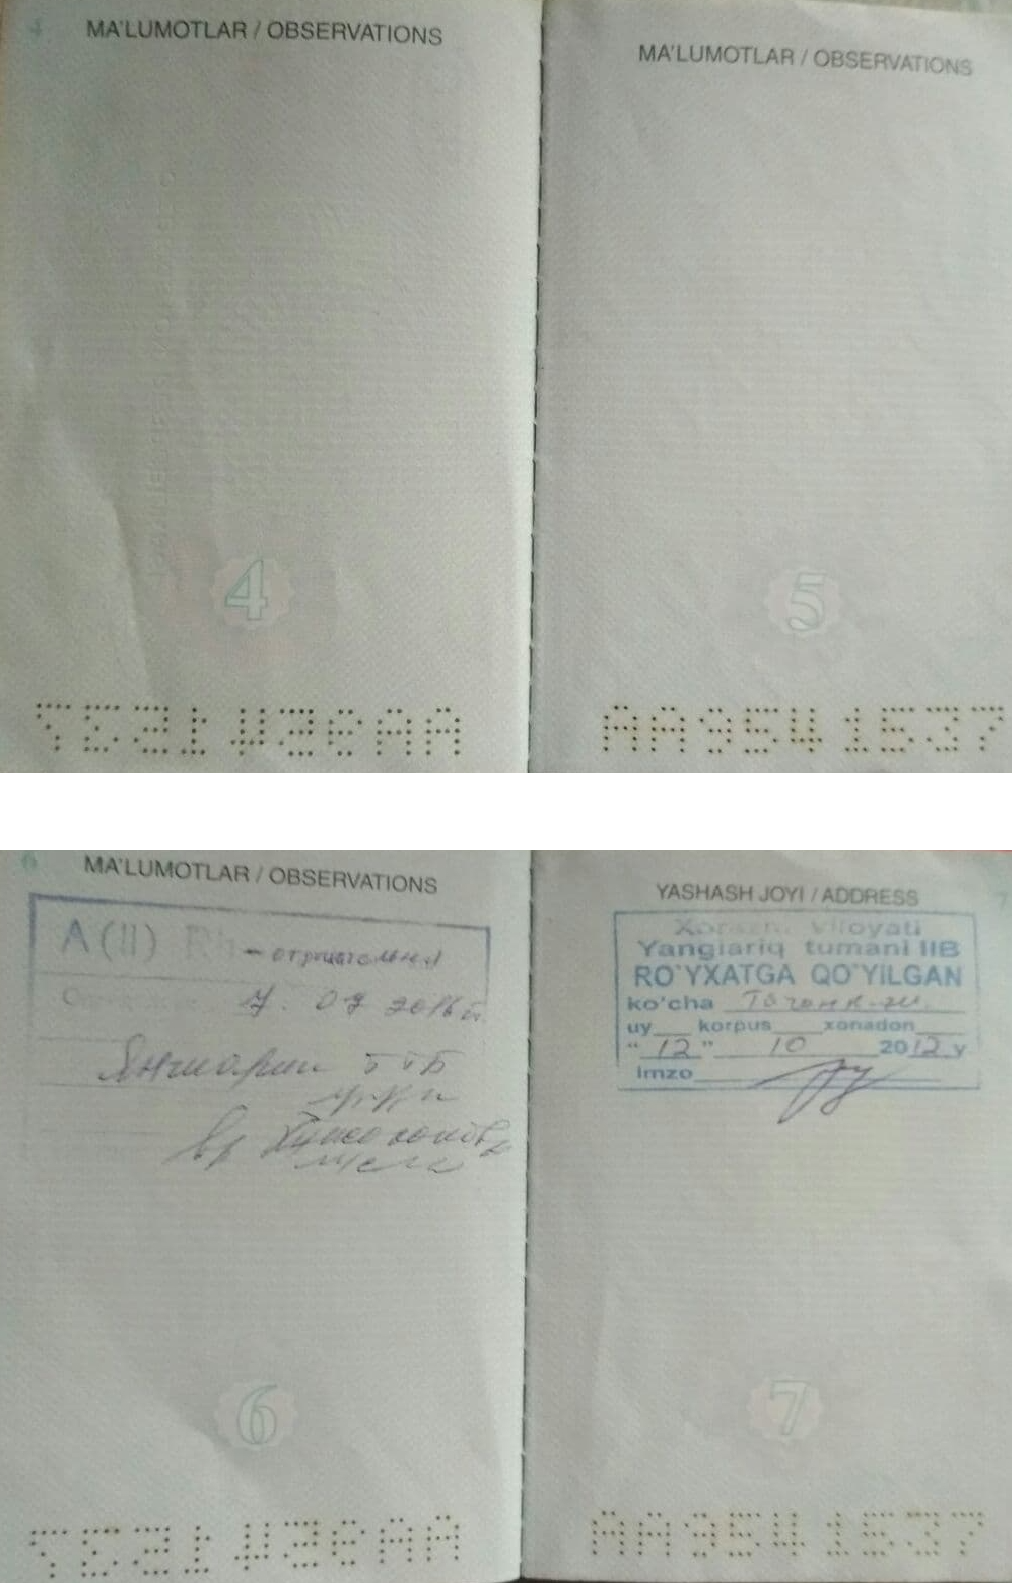 MA'LUMOTLAR / OBSERVATIONS
4
AA9541537
MA'LUMOTLAR / OBSERVATIONS
5
AA9541537
6
MA'LUMOTLAR / OBSERVATIONS
A (II) Rh - отрицательная
7. 07 2016 й
6
AA9541537
YASHASH JOYI / ADDRESS
7
Xorazm viloyati
Yangiariq tumani IIB
RO`YXATGA QO`YILGAN
ko'cha
uy korpus xonadon
"12" 10 2012 y
Imzo
7
AA9541537